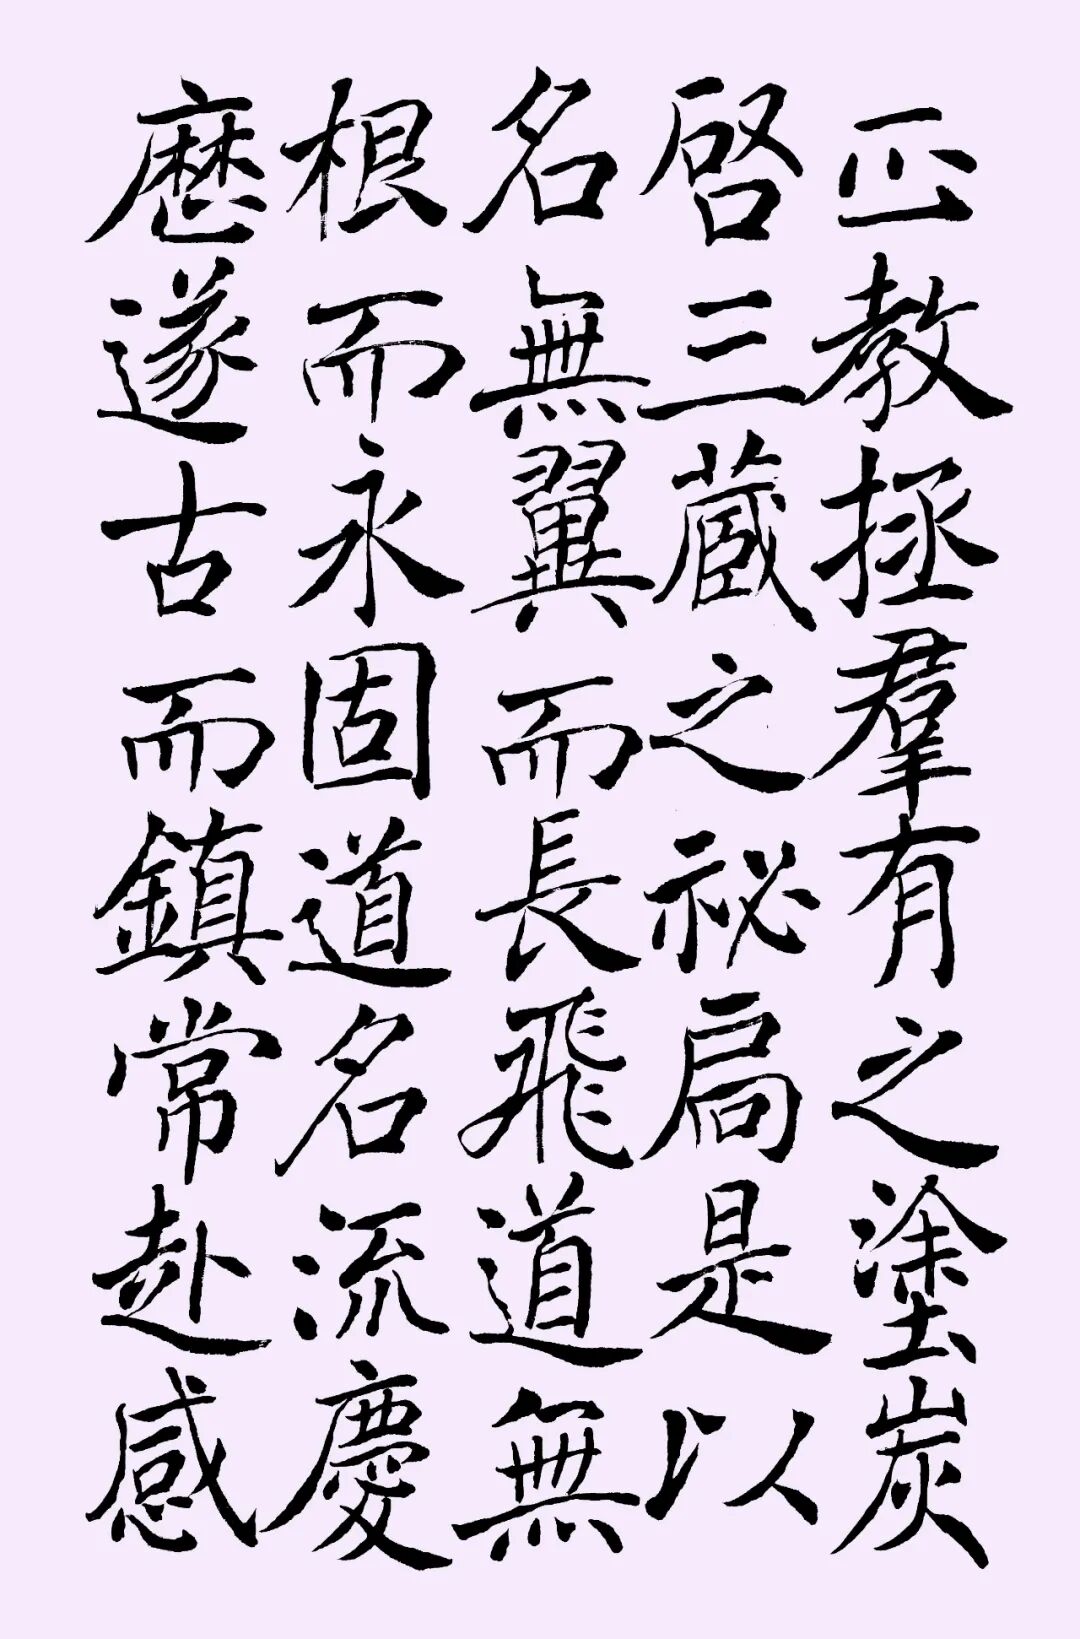 正教拯羣有之塗炭
啓三藏之祕扃是以
名無翼而長飛道無
根而永固道名流慶
歷遂古而鎮常赴感